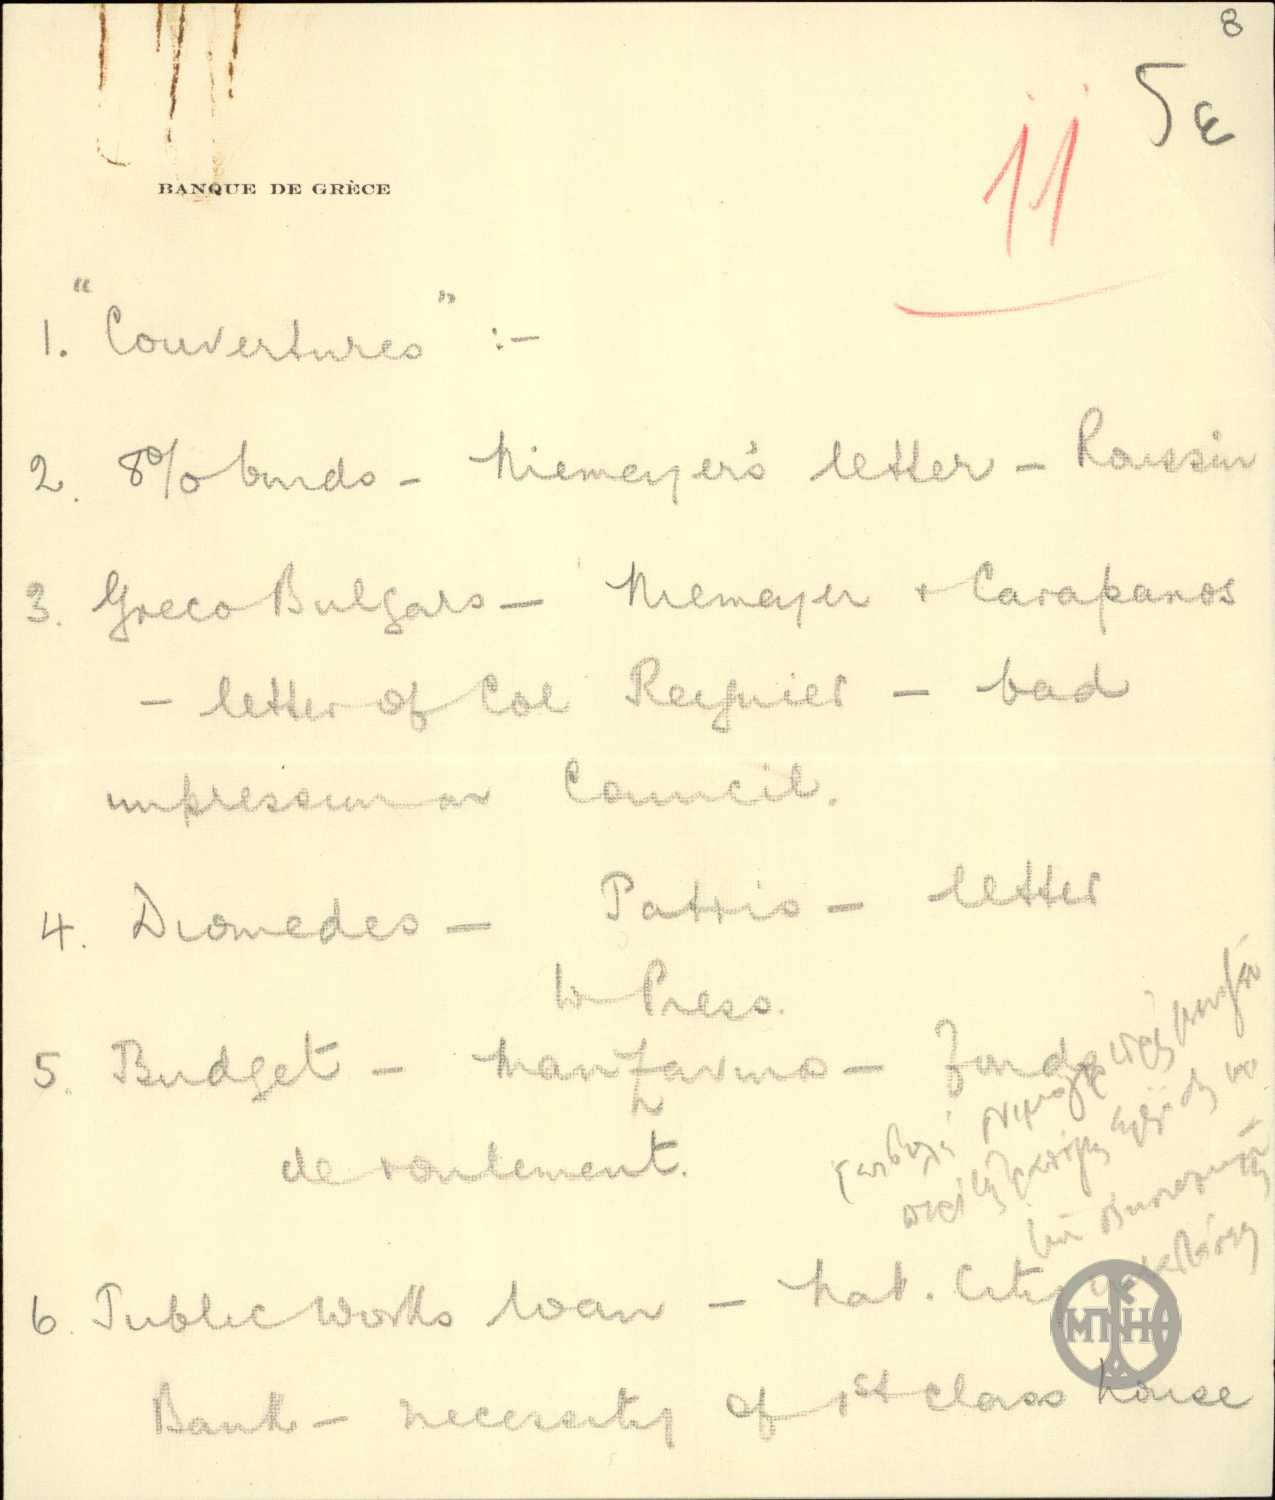 8
5ε
11
BANQUE DE GRÈCE
1. "Couvertures" :-
2. 8% bonds - Niemeyer's letter - Roussin
3. Greco Bulgars - Niemeyer + Carapanos
- letter of Col Reynier - bad
impression on Council.
4. Diomedes - Patris - letter
to Press.
5. Budget - Manzavino - fonds
de roulement.
6. Public Works loan - Nat. City
Bank - necessity of 1st class house
ΜΠΗ